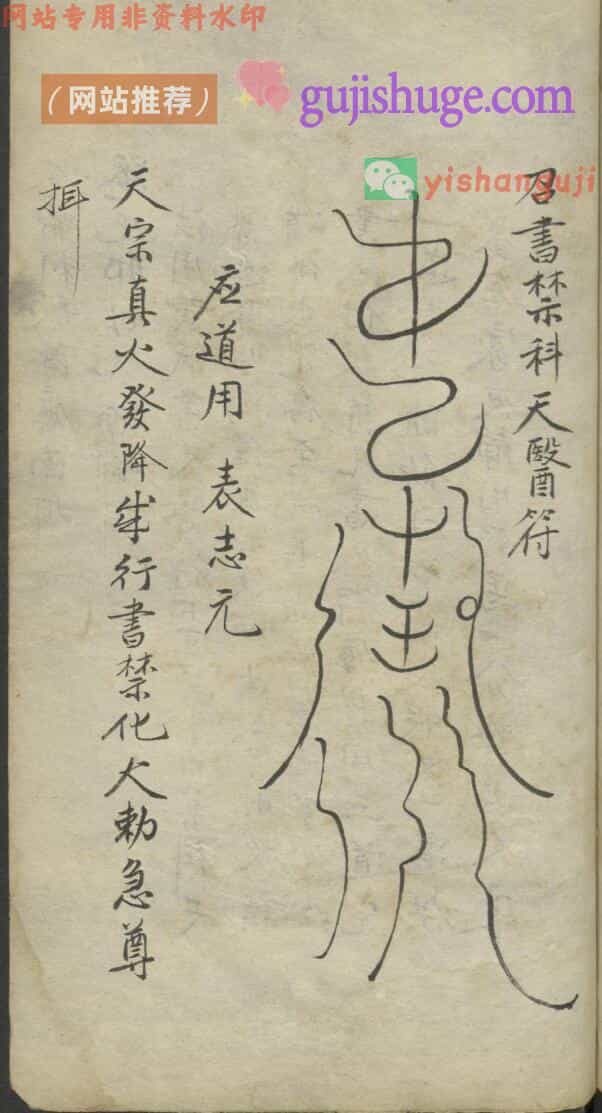 网站专用非资料水印
（网站推荐）
gujishuge.com
yishanguji
召書禁科天醫符
应道用 表志元
天宗真火發降
行書禁化大勅急尊